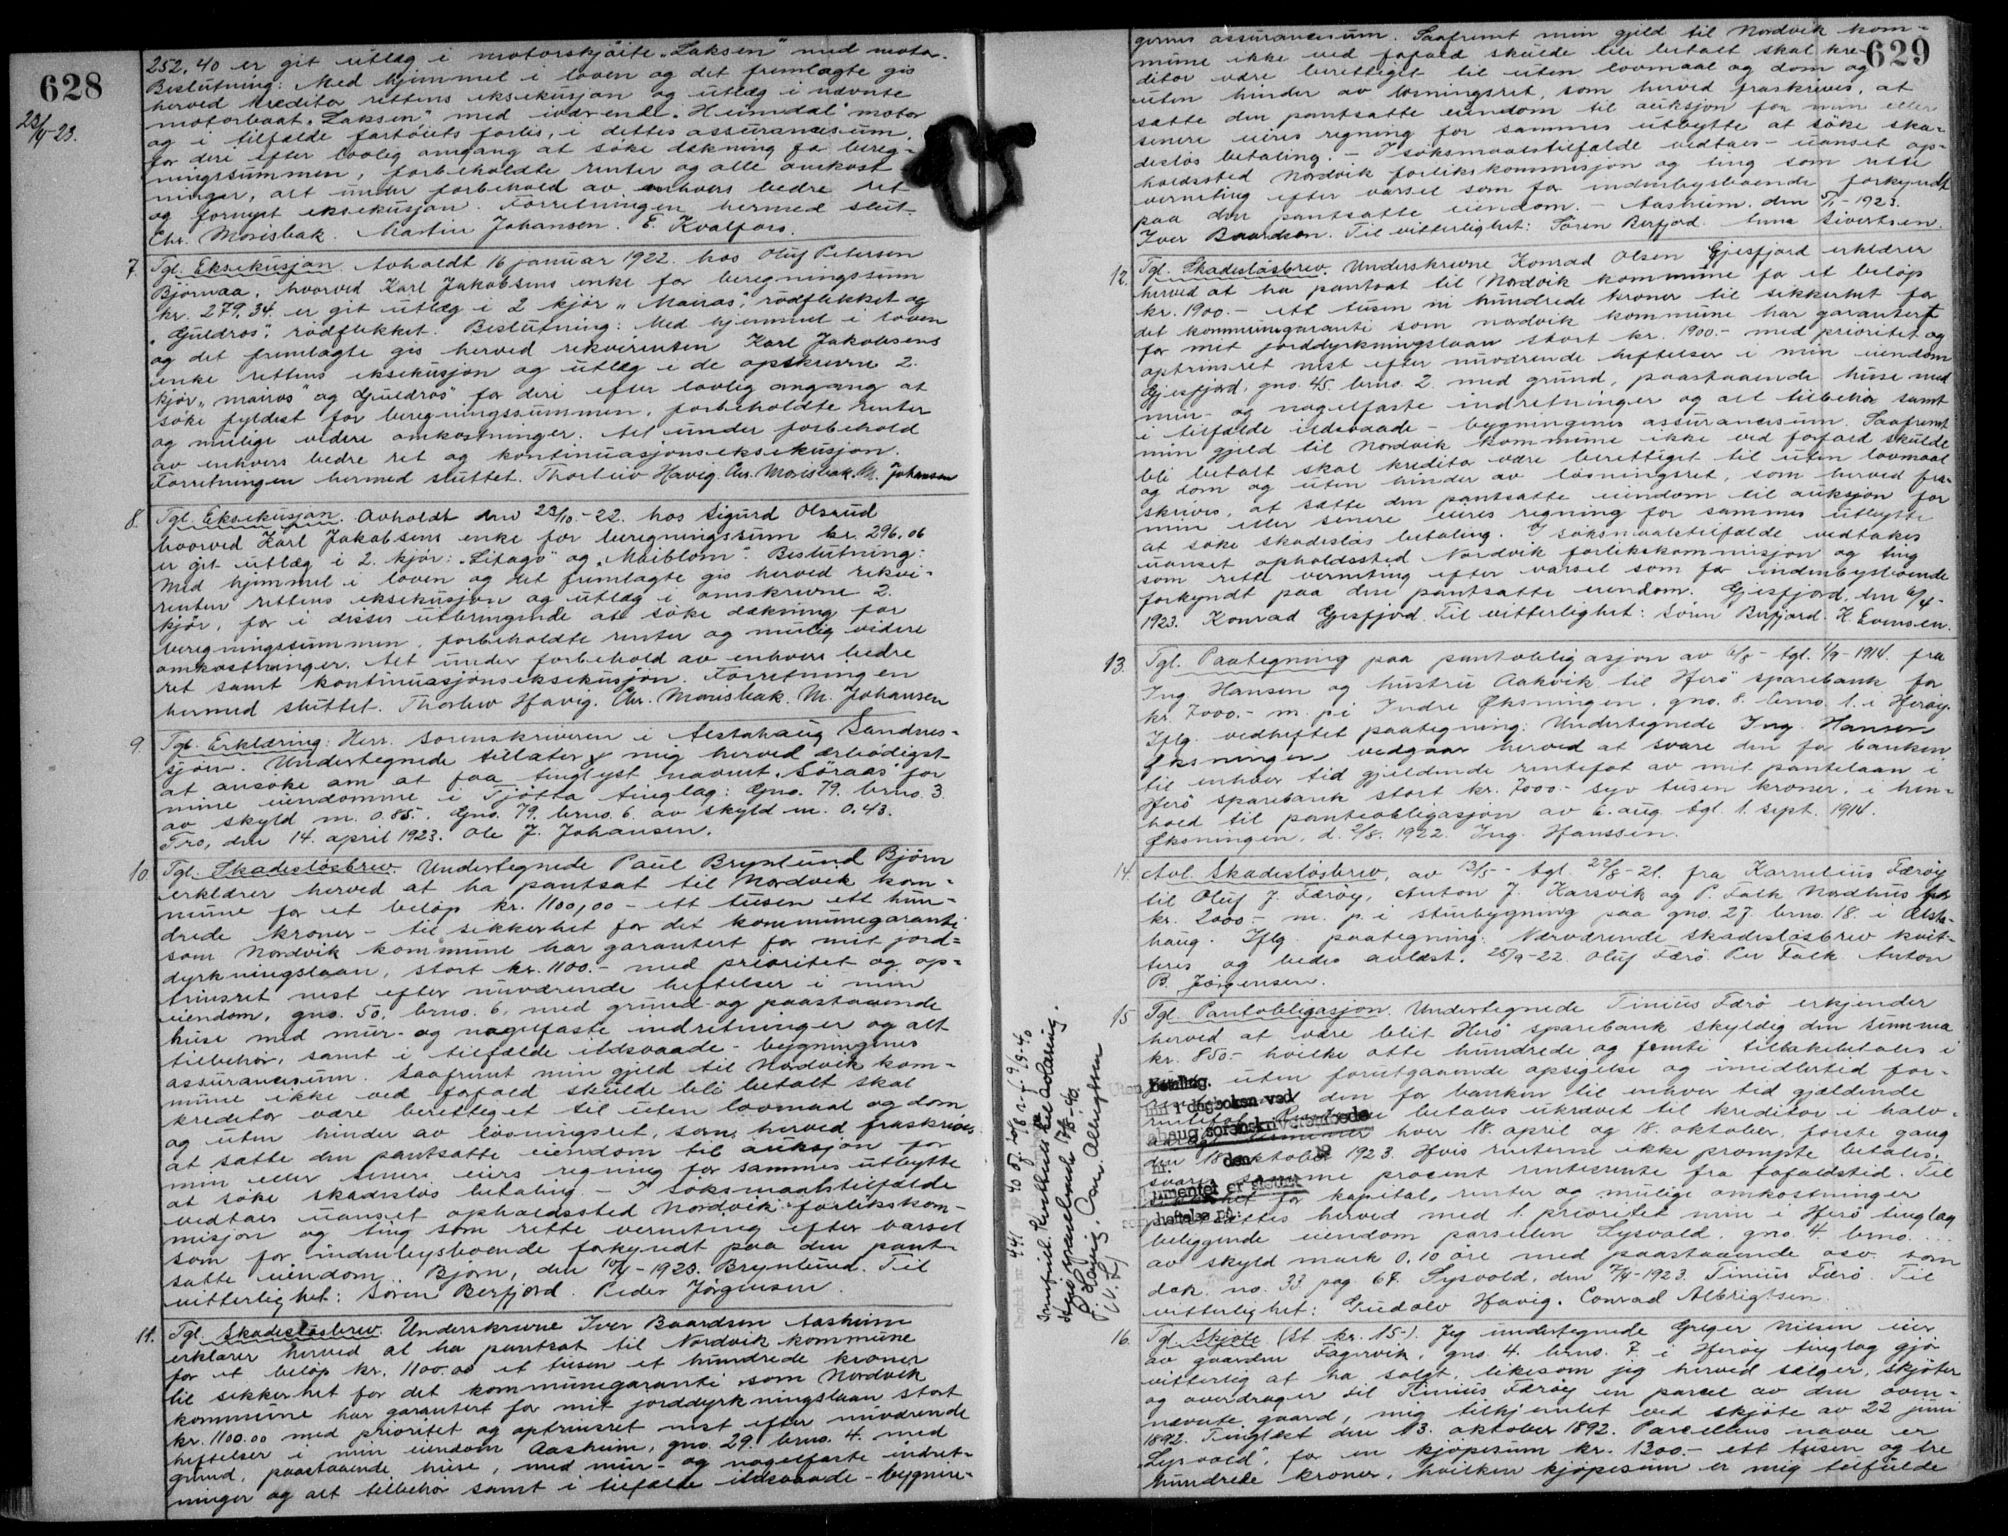 628
23/4-23.
252,40 er git utlæg i motorskjöite "Laksen" med motor.
Beslutning: Med hjemmel i loven og det fremlagte gis
herved kreditor rettens eksekusjon og utlæg i nævnte
motorbaat "Laksen" med iværende "Heimdal" motor
og i tilfælde fartöiets forlis, i dettes assurancesum,
for deri efter lovlig omgang at söke dækning for bereg-
ningssummen, forbeholdte renter og alle omkost
ninger, alt under forbehold av enhvers bedre ret
og fornyet eksekusjon. Forretningen hermed slut.
Chr. Morisbak. Martin Johansen. E. Kvalfors.
7. Tgl. Eksekusjon. Avholdt 16 januar 1922. hos Oluf Petersen
Björnaa, hvorved Karl Jakobsens enke for beregningssum
kr. 279,34 er git utlæg i 2 kjör "Mairos", rödflekket og
"Guldros", rödflekket. Beslutning: Med hjemmel i loven
og det fremlagte gis herved rekvirenten Karl Jakobsens
enke rettens eksekusjon og utlæg i de opskrevne 2.
kjör "mairos" og Guldros" for deri efter lovlig omgang at
söke fyldest for beregningssummen, forbeholdte renter
og mulige videre omkostninger. Alt under forbehold
av enhvers bedre ret og kontinuasjonseksekusjon.
Forretningen hermed sluttet. Thorleiv Havig. Chr. Morisbak. M. Johansen
8. Tgl. Eksekusjon. Avholdt den 23/10-22. hos Sigurd Olsrud
hvorved Karl Jakobsens enke for beregningssum kr. 296,06
er git utlæg i 2. kjör: "Litagö" og "Maiblom". Beslutning:
Med hjemmel i loven og det fremlagte gis herved rekvi-
renten rettens eksekusjon og utlæg i omskrevne 2.
kjör, for i disses utbringende at söke dækning for
beregningssummen, forbeholdte renter og mulig videre
omkostninger. Alt under forbehold av enhvers bedre
ret samt kontinuasjonseksekusjon. Forretningen
hermed sluttet. Thorleiv Havig. Chr. Morisbak. M. Johansen
9. Tgl. Erklæring: Herr. Sorenskriveren i Alstahaug Sandnes-
sjöen. Undertegnede tillater mig herved ærbödigst
at ansöke om at faa tinglyst navnet "Söraas" for
mine eiendomme i Tjötta tinglag: Gno. 79. brno. 3.
av skyld m. 0.85. Gno. 79. brno. 6. av skyld m. 0.43.
Tro, den 14. april 1923. Ole J. Johansen.
10. Tgl. Skadeslösbrev. Undertegnede Paul Brynlund Björn
erklærer herved at ha pantsat til Nordvik kom-
mune for et belöp kr. 1100,00 - ett tusen ett hun-
drede kroner - til sikkerhet for det kommunegaranti
som Nordvik kommune har garantert for mit jord-
dyrkningslaan, stort kr. 1100.- med prioritet og op-
trinsret nest efter nuværende heftelser i min
eiendom, gno. 50, brno. 6, med grund og paastaaende
huse med mur- og nagelfaste indretninger og alt
tilbehör, samt i tilfælde ildsvaade - bygningenes
assurancesum. Saafremt min gjeld til Nordvik kom-
mune ikke ved forfald skulde bli betalt skal
kreditor være berettiget til uten lovmaal og dom
og uten hinder av lösningsret, som herved fraskrives
at sætte den pantsatte eiendom til auksjon for
min eller senere eiers regning for sammes utbytte
at söke skadeslös betaling. - I söksmaalstilfælde
vedtaes uanset opholdssted Nordvik forlikskom-
misjon og ting som rette verneting efter varsel
som for indenbysboende forkyndt paa den pant-
satte eiendom. Björn, den 10/4-1923. Brynlund. Til
vitterlighet: Sören Berfjord. Peder Jörgensen.
11. Tgl. Skadeslösbrev. Underskrevne Iver Baardsen Aasheim
erklærer herved at ha pantsat til Nordvik kommune
for et belöp kr. 1100.00 et tusen et hundrede kroner
til sikkerhet for det kommunegaranti som Nordvik
kommune har garantert for mit jorddyrkningslaan stort
kr. 1100.00 med prioritet og optrinsret nest efter nuværende
heftelser i min eiendom Aasheim, gno. 29. brno. 4. med
grund, paastaaende huse, med mur- og nagelfaste indret-
ninger og alt tilbehör samt i tilfælde ildsvaade - bygnin-
629
gernes assurancesum. Saafremt min gjeld til Nordvik kom-
mune ikke ved forfald skulde bli betalt skal kre-
ditor være berettiget til uten lovmaal og dom og
uten hinder av lösningsret, som herved fraskrives, at
sætte den pantsatte eiendom til auksjon for min eller
senere eiers regning for sammes utbytte at söke ska-
deslös betaling. - I söksmaalstilfælde vedtaes - uanset op-
holdssted Nordvik forlikskommisjon og ting som rette
verneting efter varsel som for indenbysboende forkyndt
paa den pantsatte eiendom. - Aasheim, den - 1923.
Iver Baardsen. Til vitterlighet: Sören Berfjord. Sivertsen.
12. Tgl. Skadeslösbrev. Underskrevne Konrad Olsen Gjesfjord erklærer
herved at ha pantsat til Nordvik kommune for et belöp
kr. 1900.- ett tusen ni hundrede kroner til sikkerhet for
det kommunegaranti som nordvik kommune har garantert
for mit jorddyrkningslaan stort kr. 1900.- med prioritet og
optrinsret nest efter nuværende heftelser i min eiendom
Gjesfjord, gno. 45. brno. 2. med grund, paastaaende huse med
mur- og nagelfaste indretninger og alt tilbehör samt
i tilfælde ildsvaade - bygningenes assurancesum. Saafremt
min gjeld til Nordvik kommune ikke ved forfald skulde
bli betalt skal kreditor være berettiget til uten lovmaal
og dom og uten hinder av lösningsret, som herved fra-
skrives, at sætte den pantsatte eiendom til auksjon for
min eller senere eiers regning for sammes utbytte
at söke skadeslös betaling. I söksmaalstilfælde vedtakes
uanset opholdssted Nordvik forlikskommisjon og ting
som rette verneting efter varsel som for indenbysboende
forkyndt paa den pantsatte eiendom. Gjesfjord, den 6/4-
1923. Konrad Gjesfjord. Til vitterlighet: Sören Berfjord. K. Evensen.
13. Tgl. Paategning paa pantobligasjon av 6/8- tgl. 1/9-1914. fra
Ing. Hansen og hustru Aakvik til Herö sparebank for
kr. 7000.- m. p. i Indre Øksningen, gno. 8. brno. 1. i Heröy.
Iflg. vedheftet paategning: Undertegnede Ing. Hansen
Øksningen vedgaar herved at svare den for banken
til enhver tid gjeldende rentefot av mit pantelaan i
Herö sparebank stort kr. 7000.- syv tusen kroner, i hen-
hold til panteobligasjon av 6. aug. tgl. 1. sept. 1914.
Øksningen, d. 2/8. 1922. Ing. Hanssen.
14. Avl. Skadeslösbrev, av 13/5- tgl. 22/8-21. fra Karnelius Færöy
til Oluf J. Færöy, Anton J. Karsvik og P. Falk Nordhus for
kr. 2000.- m. p. i stuebygning paa gno. 27 brno. 18. i Alsta-
haug. Iflg. paategning: Nærværende skadeslösbrev kvit-
teres og bedes avlæst. 25/9-22. Oluf Færö. Per Falk. Anton
B. Jörgensen.
15. Tgl. Pantobligasjon. Undertegnede Tinius Færö erkjender
herved at være blit Herö sparebank skyldig den summa
kr. 850.- hvilke otte hundrede og femti tilbakebetales i
uten forutgaaende opsigelse og imidlertid for-
den for banken til enhver tid gjældende
betales ukrævet til kreditor i halv-
hver 18. april og 18. oktober, förste gang
den 18 oktober 1923. Hvis renterne ikke prompte betales,
svares procent rentesrente fra forfaldstid. Til
for kapital, renter og mulige omkostninger
herved med 1. prioritet min i Herö tinglag
beliggende eiendom parsellen Lysvold gno. 4. brno. ...
av skyld mark 0.10 öre med paastaaende osv. som
dok. no. 33 pag 67. Lysvold, den 7/4-1923. Tinius Færö. Til
vitterlighet: Gudolv Havig. Conrad Albrigtsen.
betaling.
inn i dagboken ved
ahaug sorenskriverembede
den
umentet er slettet
heftelse på:
441 1940
P. Havig. Con. Albrigtsen
16. Tgl. Skjöte (St. kr. 15.-). Jeg undertegnede Greger Nilsen eier
av gaarden Fagervik, gno. 4. brno. 7. i Heröy tinglag gjör
vitterlig at ha solgt, likesom jeg herved sælger, skjöter
og overdrager til Tinius Færöy en parcel av den oven-
nævnte gaard, mig tilhjemlet ved skjöte av 22 juni
1892. Tinglæst den 13. oktober 1892. Parcellens navn er
"Lysvold", for en kjöpesum kr. 1300.- ett tusen og tre
hundrede kroner, hvilken kjöpesum er mig tilfulde